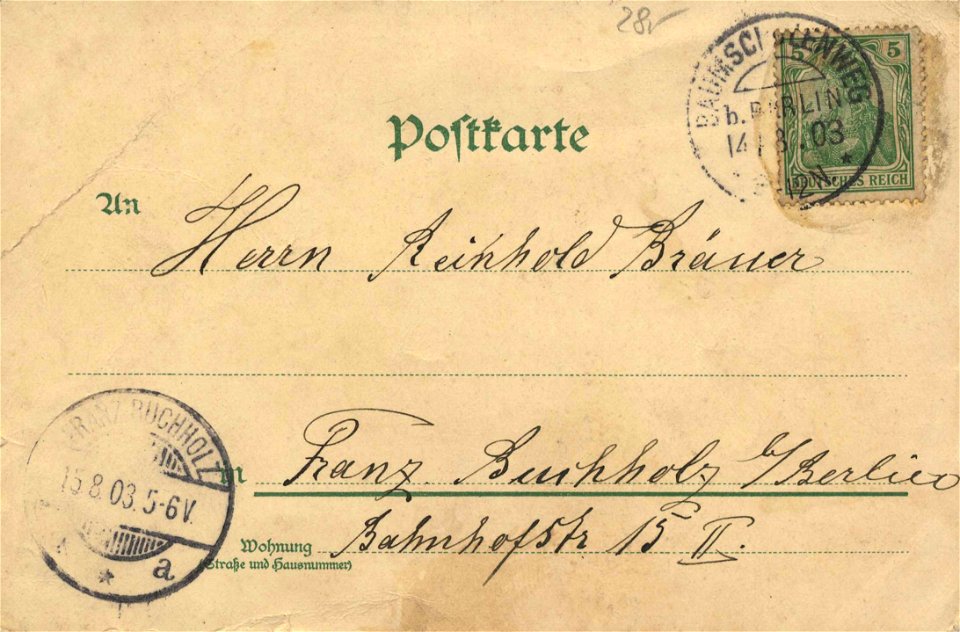 28,-
BAUMSCHULENWEG
b. BERLIN
14 8.03
-12N.
5 5
DEUTSCHES REICH
Postkarte
An Herrn Reinhold Bräuer
FRANZ BUCHHOLZ
15.8.03.5-6V.
* a
in Franz. Buchholz b/Berlin
Wohnung Bahnhofstr 15 II.
(Straße und Hausnummer)